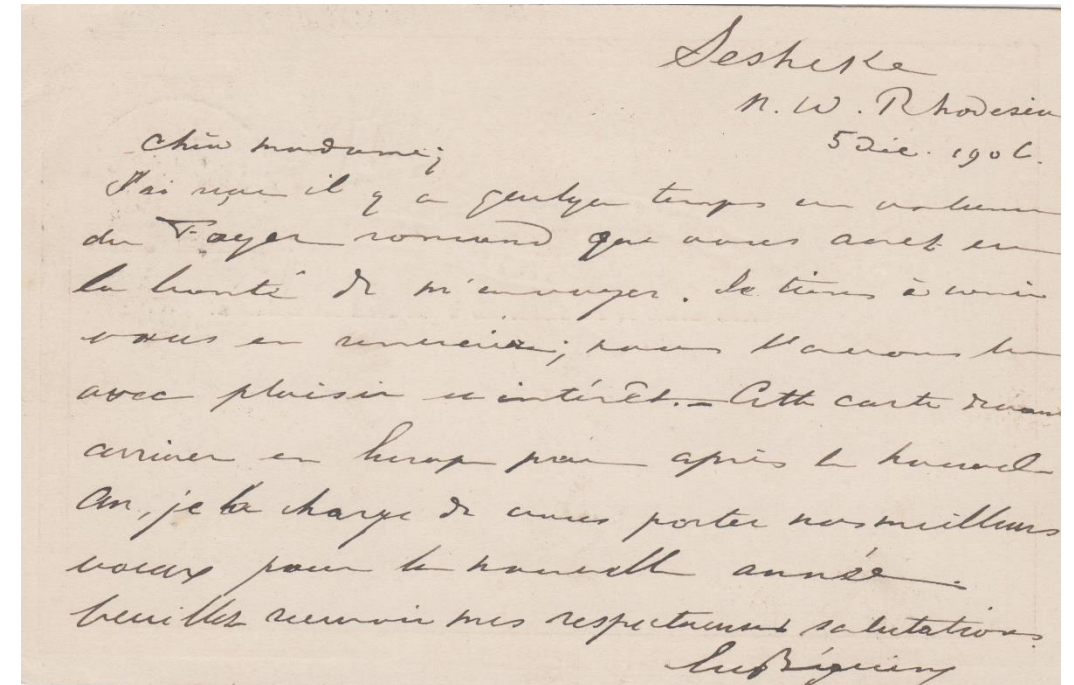 Sesheke
N. W. Rhodesia
5 Déc. 1906.
Chère madame;
J'ai reçu il y a quelque temps un volume
du Foyer romand que vous avez eu
la bonté de m'envoyer. Je tiens à venir
vous en remercier; nous l'avons lu
avec plaisir et intérêt. – Cette carte devant
arriver en Europe peu après le nouvel
An, je la charge de vous porter nos meilleurs
voeux pour la nouvelle année.
Veuillez recevoir mes respectueuses salutations.
Eug Béguin